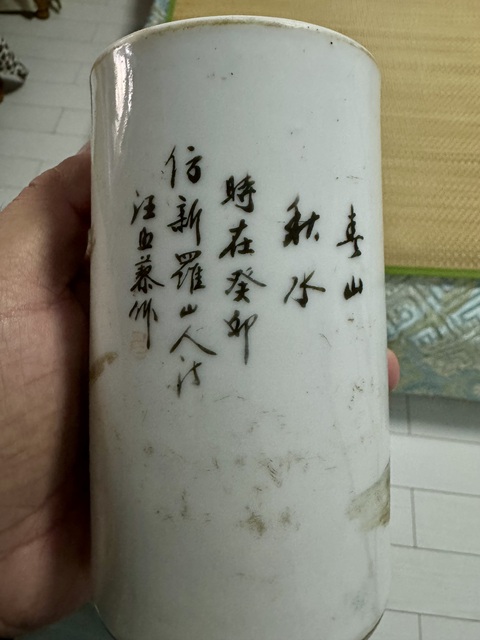 春山
秋水
時在癸卯
仿新羅山人法
汪照藜作